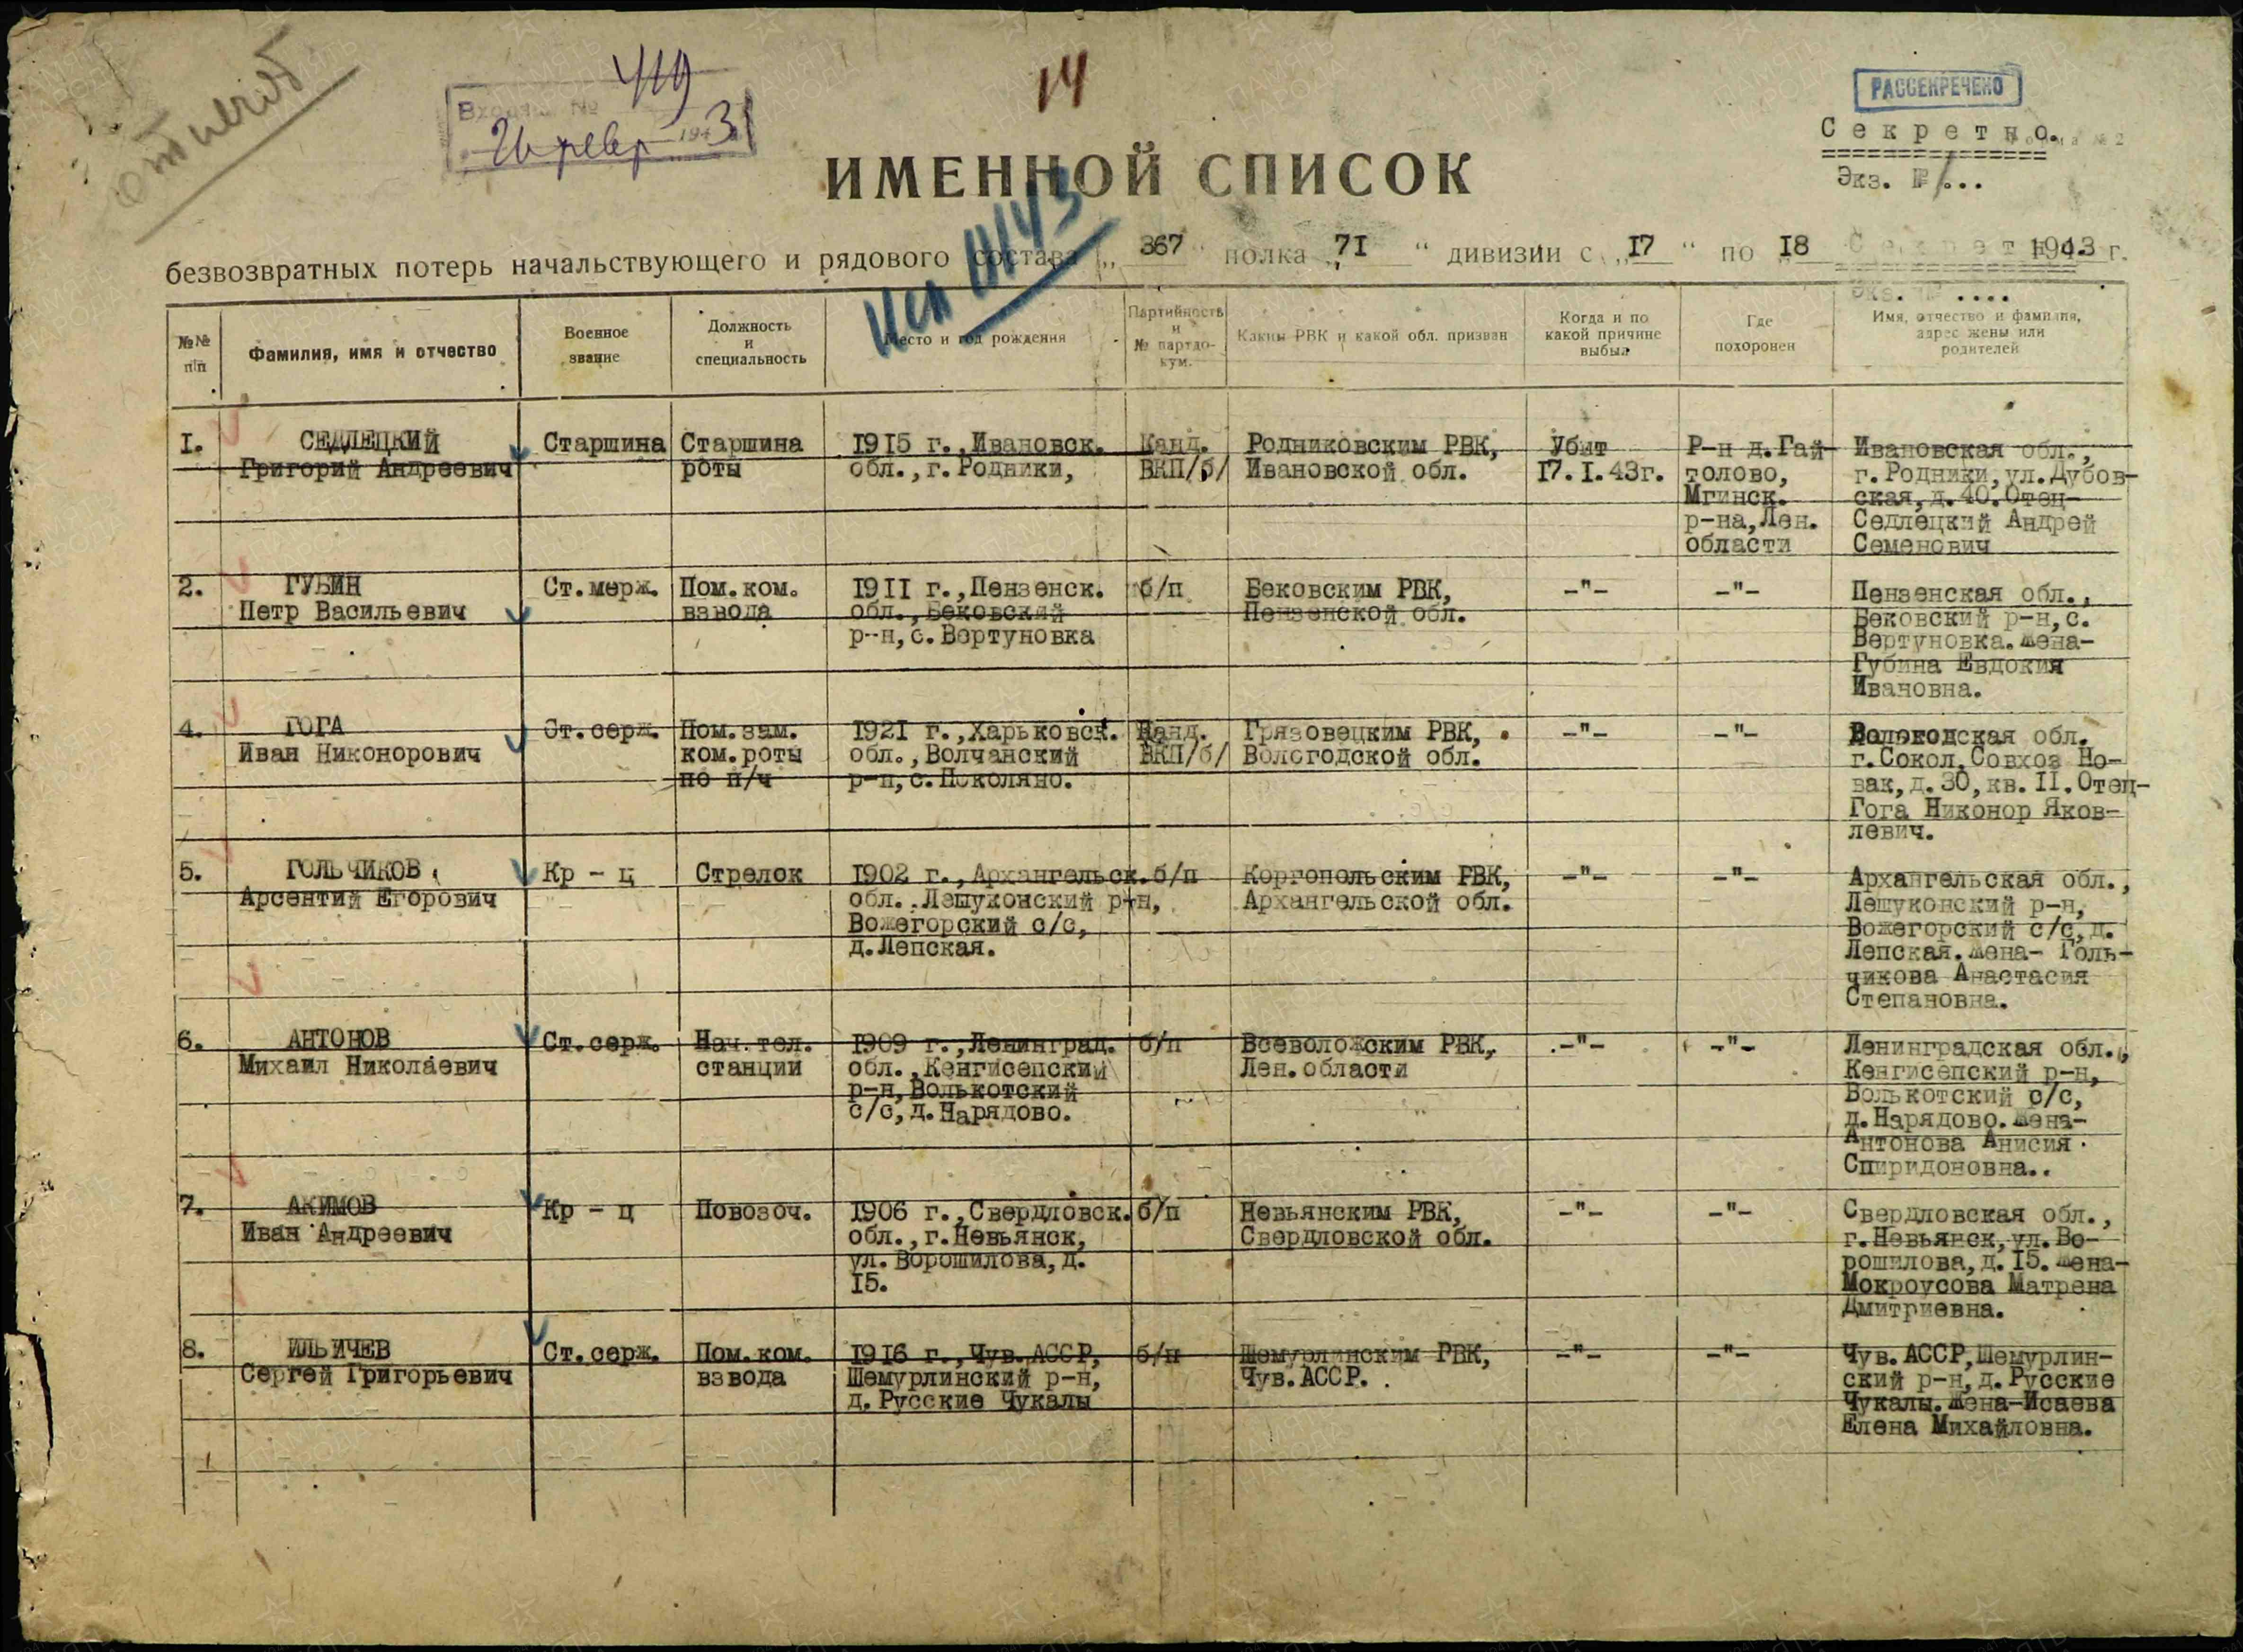 отпечат
419
14
РАССЕКРЕЧЕНО
Входящ. №
Секретно.
Форма № 2
21 февр 1943
ИМЕННОЙ СПИСОК
Экз. № 1...
безвозвратных потерь начальствующего и рядового состава „ 367 “ полка „ 71 “ дивизии с „ 17 “ по „ 18 1943 г.
Секретно.
Экз. № ....
№№ п/п
Фамилия, имя и отчество
Военное звание
Должность и специальность
Место и год рождения
Партийность и № партдокум.
Каким РВК и какой обл. призван
Когда и по какой причине выбыл
Где похоронен
Имя, отчество и фамилия, адрес жены или родителей
1. СЕДЛЕЦКИЙ Старшина Старшина 1915 г., Ивановск. Канд. Родниковским РВК, Убит Р-н д.Гай- Ивановская обл.,
Григорий Андреевич роты обл., г.Родники, ВКП/б/ Ивановской обл. 17.I.43г. толово, г.Родники, ул.Дубов-
Мгинск. ская, д.40. Отец-
р-на, Лен. Седлецкий Андрей
области Семенович
2. ГУБИН Ст.мерж. Пом.ком. 1911 г., Пензенск. б/п Бековским РВК, -"- -"- Пензенская обл.,
Петр Васильевич взвода обл., Бековский Пензенской обл. Бековский р-н, с.
р-н, с. Вертуновка Вертуновка. Жена-
Губина Евдокия
Ивановна.
4. ГОГА Ст.серж. Пом.зам. 1921 г., Харьковск. Канд. Грязовецким РВК, -"- -"- Вологодская обл.
Иван Никонорович ком.роты обл., Волчанский ВКП/б/ Вологодской обл. г.Сокол, Совхоз Но-
по п/ч р-н, с.Поколяно. вак, д.30, кв.II. Отец-
Гога Никонор Яков-
левич.
5. ГОЛЬЧИКОВ Кр - ц Стрелок 1902 г., Архангельск. б/п Коргопольским РВК, -"- -"- Архангельская обл.,
Арсентий Егорович обл. Лешуконский р-н, Архангельской обл. Лешуконский р-н,
Вожегорский с/с, Вожегорский с/с, д.
д.Лепская. Лепская. Жена- Голь-
чикова Анастасия
Степановна.
6. АНТОНОВ Ст.серж. Нач.тел. 1909 г., Ленинград. б/п Всеволожским РВК, -"- -"- Ленинградская обл.,
Михаил Николаевич станции обл., Кенгисепский Лен.области Кенгисепский р-н,
р-н, Волькотский Волькотский с/с,
с/с, д.Нарядово. д.Нарядово. Жена-
Антонова Анисия
Спиридоновна..
7. АКИМОВ Кр - ц Повозоч. 1906 г., Свердловск. б/п Невьянским РВК, -"- -"- Свердловская обл.,
Иван Андреевич обл., г.Невьянск, Свердловской обл. г.Невьянск, ул.Во-
ул. Ворошилова, д. рошилова, д.15. Жена-
15. Мокроусова Матрена
Дмитриевна.
8. ИЛЬИЧЕВ Ст.серж. Пом.ком. 1916 г., Чув.АССР, б/п Шемурлинским РВК, -"- -"- Чув.АССР, Шемурлин-
Сергей Григорьевич взвода Шемурлинский р-н, Чув.АССР. ский р-н, д. Русские
д.Русские Чукалы Чукалы. Жена-Исаева
Елена Михайловна.